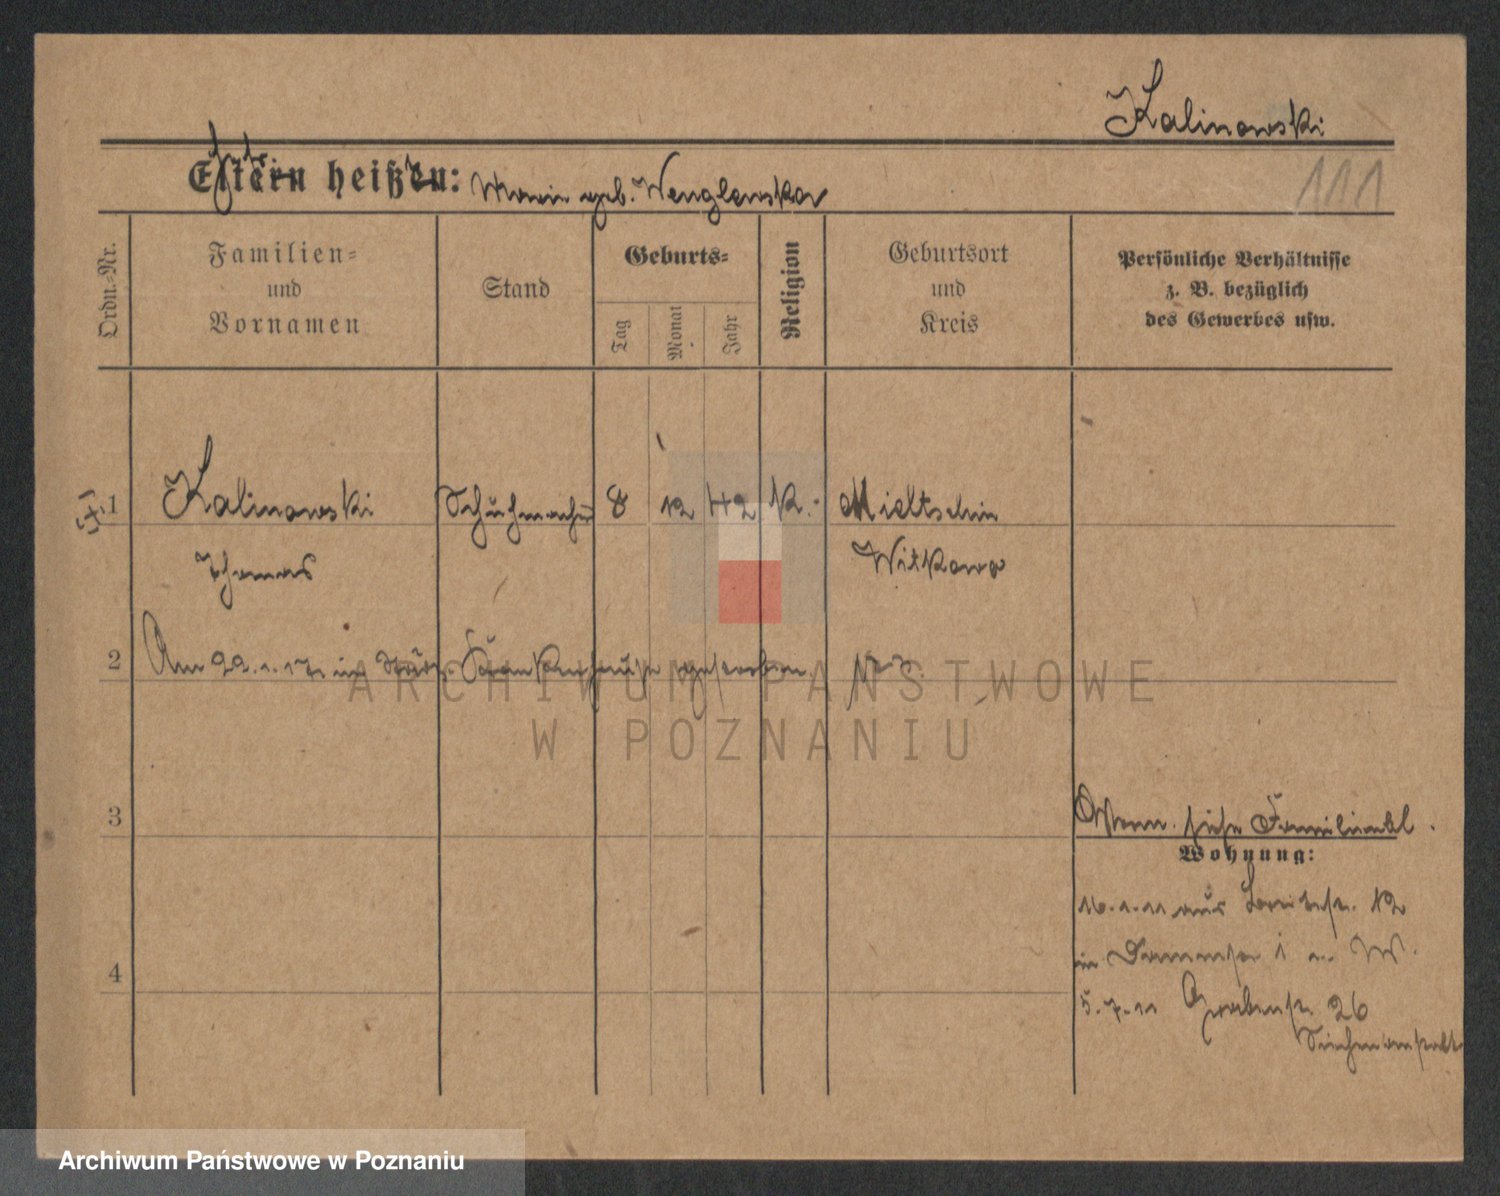 Kalinowski
Eltern heißen: Marie geb. Wenglewska
111
Ordn.-Nr.
Familien-
und
Vornamen
Stand
Geburts-
Tag
Monat
Jahr
Religion
Geburtsort
und
Kreis
Persönliche Verhältnisse
z. B. bezüglich
des Gewerbes usw.
1 Kalinowski Schuhmacher 8 12 42 K. Mieltschin
Thomas Witkowo
2 Am 22.1.17 im Krankenhause gestorben
3
siehe Familienbl.
Wohnung:
16.1.11 aus 12
in
4
5.7.11 Grabenstr. 26
Siechenanstalt
ARCHIWUM PAŃSTWOWE
W POZNANIU
Archiwum Państwowe w Poznaniu